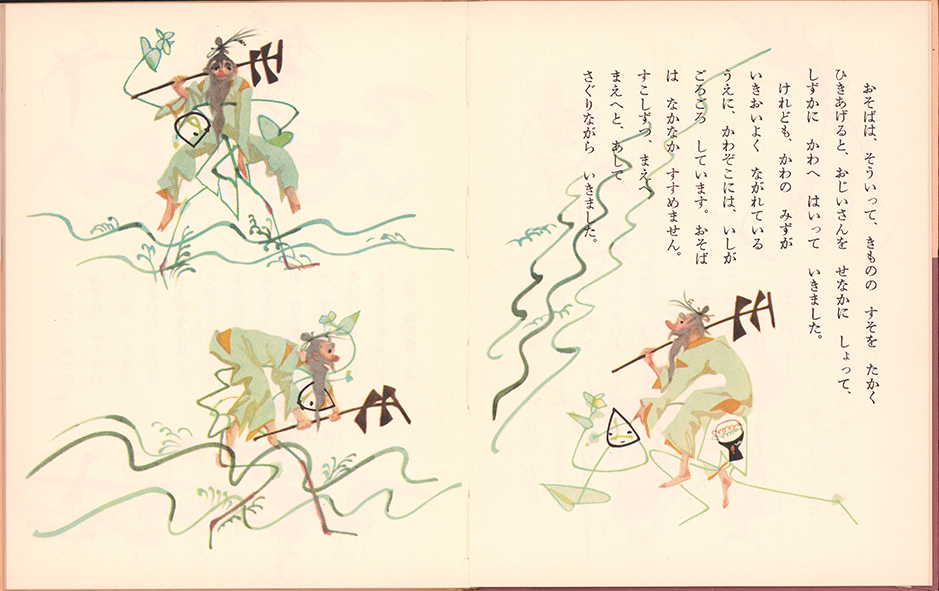 おそばは、そういって、きものの　すそを　たかく
ひきあげると、おじいさんを　せなかに　しょって、
しずかに　かわへ　はいって　いきました。
けれども、かわの　みずが
いきおいよく　ながれている
うえに、かわぞこには、いしが
ごろごろ　しています。おそば
は　なかなか　すすめません。
すこしずつ、まえへ
まえへと、あしで
さぐりながら　いきました。